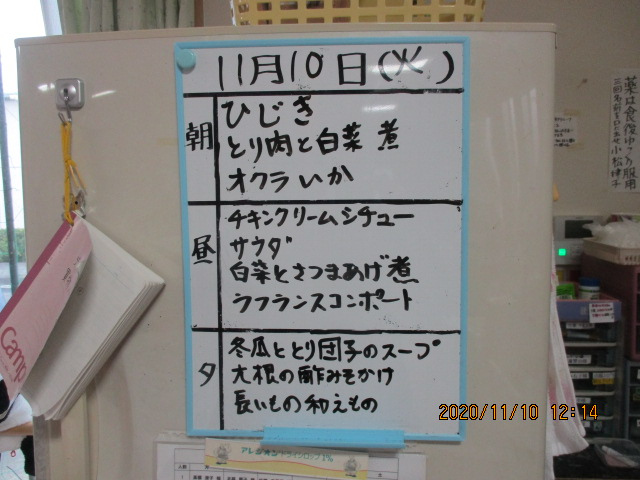 11月10日(火)
朝
ひじき
とり肉と白菜煮
オクラいか
昼
チキンクリームシチュー
サラダ
白菜とさつまあげ煮
ラフランスコンポート
夕
冬瓜ととり団子のスープ
大根の酢みそかけ
長いもの和えもの
2020/11/10 12:14
アレジオンドライシロップ1%
Camp
薬は食後ゆっくり服用